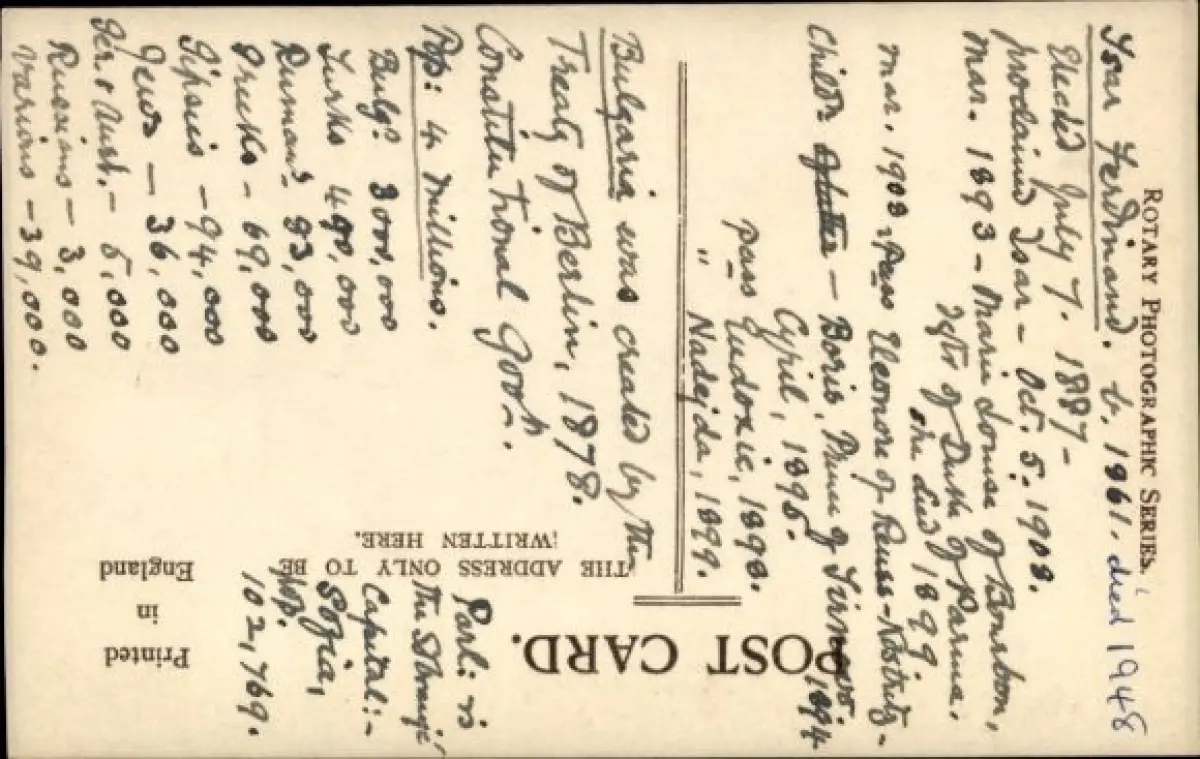 ROTARY PHOTOGRAPHIC SERIES.
Tsar Ferdinand. b. 1861. died 1948
Elected July 7. 1887 -
proclaimed Tsar - Oct. 5. 1908.
Mar. 1893 - Marie Louise of Bourbon,
dghtr of Duke of Parma.
she died 1899.
mar. 1908, Pass Eleonore of Reuss-Köstritz -
Childn - Boris, Prince of Tirnovo. 1894
Cyril, 1895.
Pass Eudoxie, 1898.
" Nadejda, 1899.
Bulgaria was created by the
Treaty of Berlin, 1878.
Constitutional Govt.
Pop: 4 millions.
Bulgs 3000,000
Turks 490,000
Rumans 83,000
Greeks - 69,000
Gipsies - 94,000
Jews - 36,000
Ger. & Aust. - 5,000
Russians - 3,000
Various - 39,000.
Parl: is
the Sobranje
Capital:-
Sofia,
Pop.
102,769.
POST CARD.
THE ADDRESS ONLY TO BE
WRITTEN HERE.
Printed
in
England